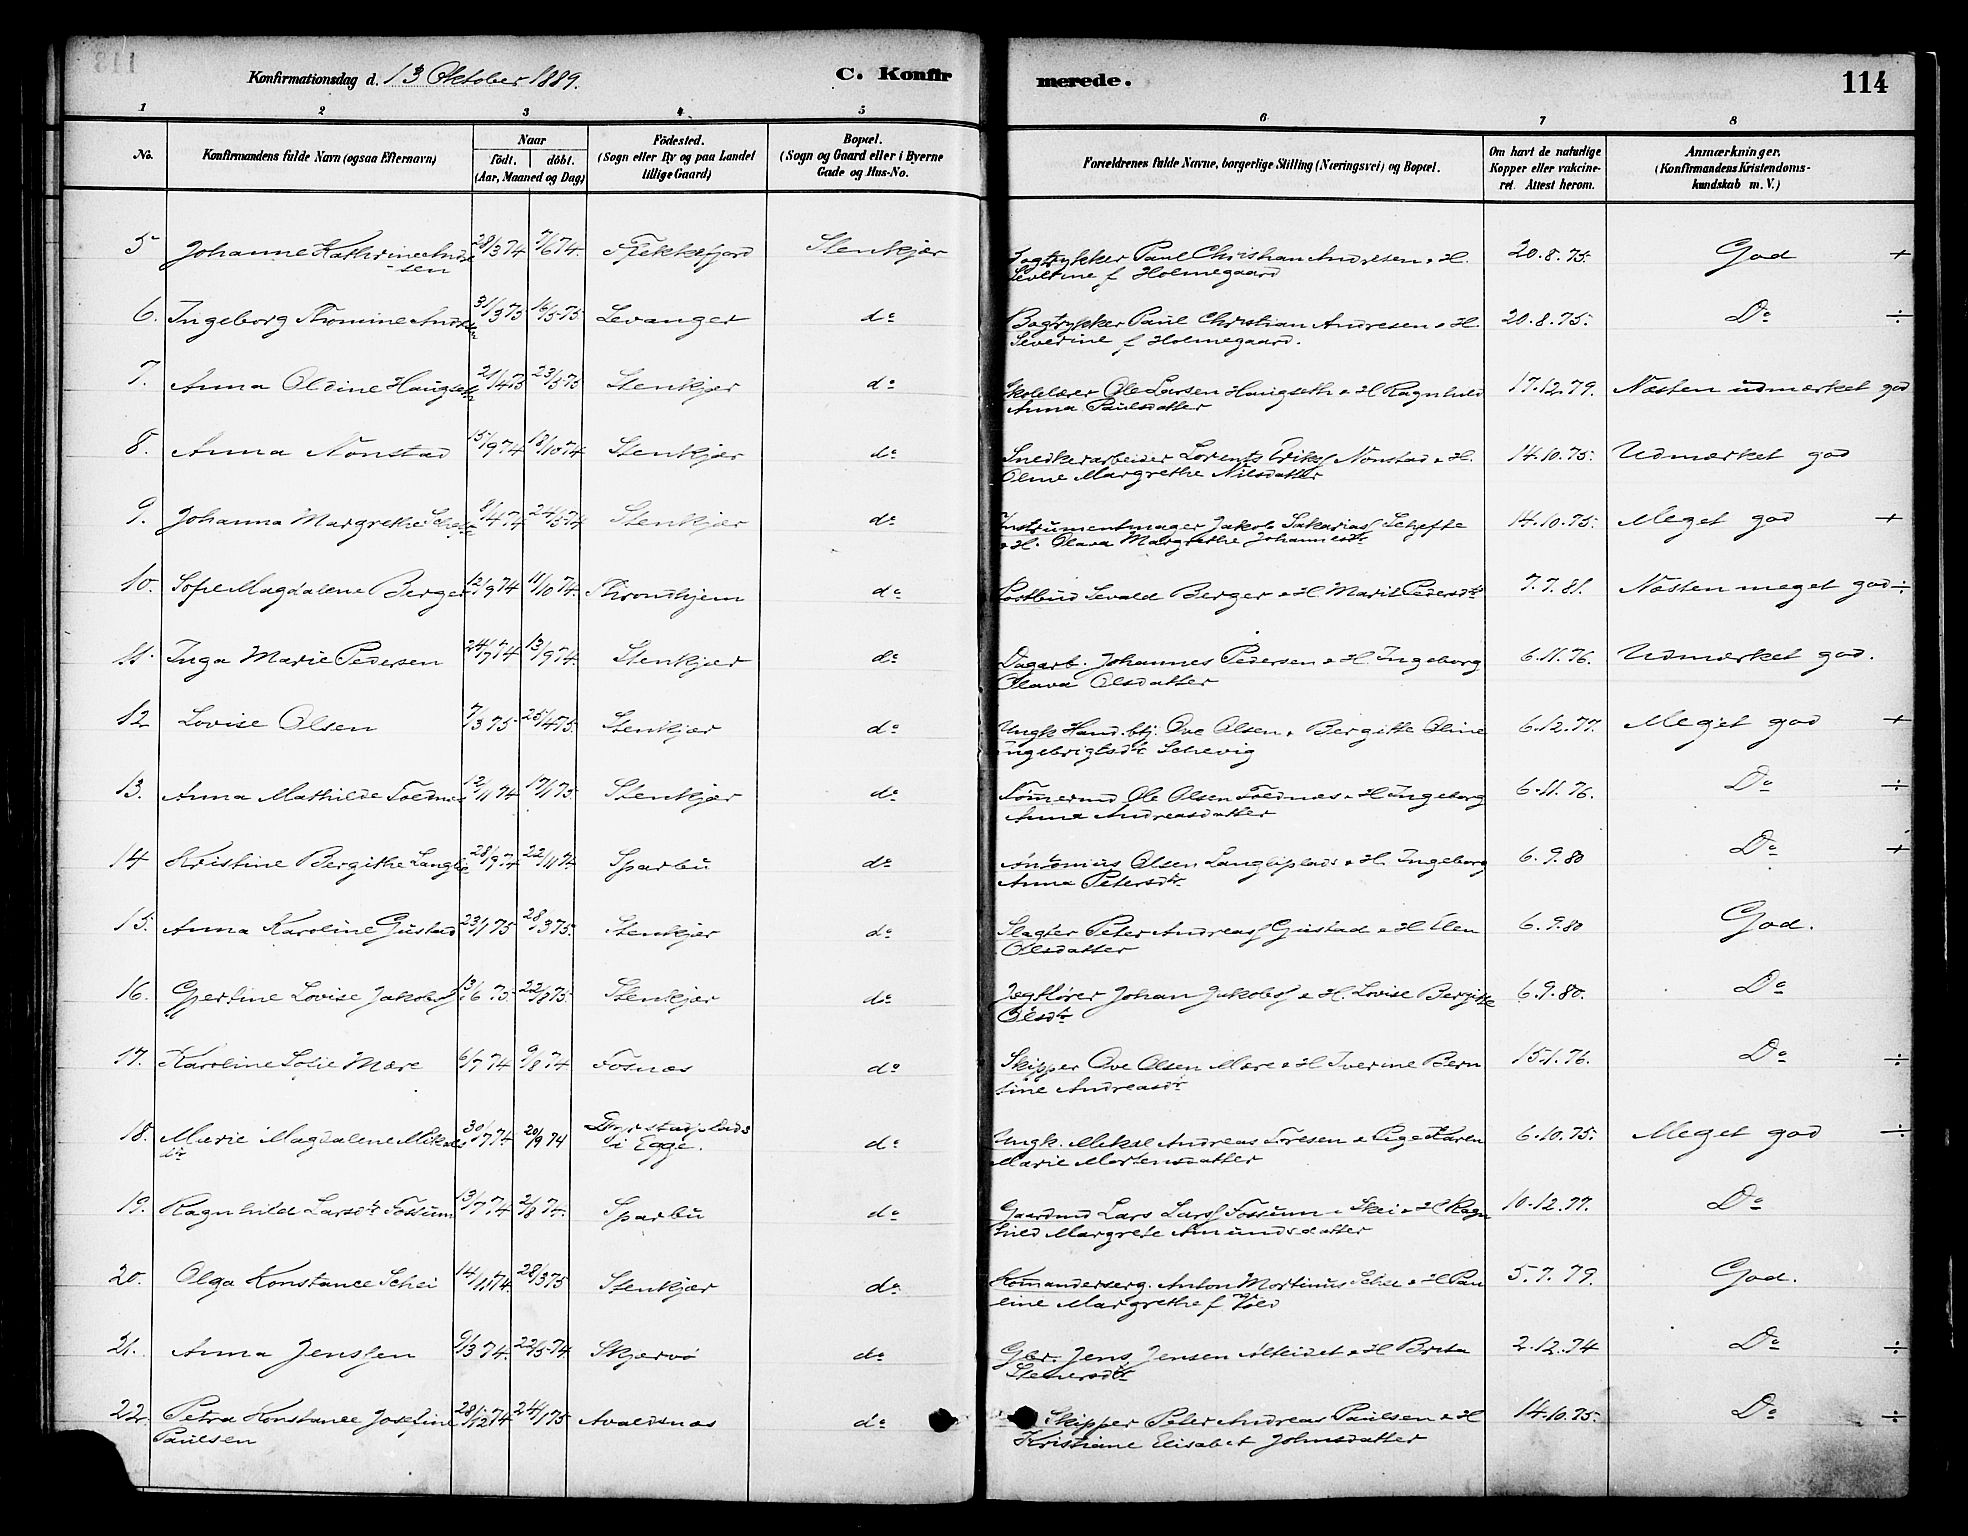 Konfirmationsdag d. 13 Oktober 1889.
C. Konfirmerede.
114
1 2 3 4 5 6 7 8
No.
Konfirmandens fulde Navn (ogsaa Efternavn)
Naar
födt. döbt.
(Aar, Maaned og Dag)
Födested.
(Sogn eller By og paa Landet
tillige Gaard)
Bopæl.
(Sogn og Gaard eller i Byerne
Gade og Hus-No.
Forældrenes fulde Navne, borgerlige Stilling (Næringsvei) og Bopæl.
Om havt de naturlige
Kopper eller vakcine-
ret. Attest herom.
Anmærkninger.
(Konfirmandens Kristendoms-
kundskab m. V.)
5 Johanne Kathrine Andre 28/3 74 7/6 74. Flekkefjord Stenkjær Bogtrykker Paul Christian Andresen & H. 20.8.75. God +
-sen Severine f Holmegaard
6. Ingeborg Thomine Andre 31/3 75 16/5 75 Levanger do Bogtrykker Paul Christian Andresen & H. 20.8.75. Do ÷
Severine f Holmegaard.
7. Anna Oldine Haugseth 21/4 75 23/5 75 Stenkjær do Skolelærer Ole Larsen Haugseth & H Ragnhild 17.12.79. Næsten udmærket god
Anna Paulsdatter
8. Anna Nonstad 15/9 74 18/10 74 Stenkjær do Snedkerarbeider Lorents Eriks Nonstad & H. 14.10.75. Udmærket god
Oline Margrethe Nilsdatter
9. Johanna Margrethe 9/4 74 24/5 74 Stenkjær do Instrumentmager Jakob Sakarias Schefte 14.10.75. Meget god +
& H. Olava Margrethe Johannesdtr
10. Sofie Magdalene Berger 12/9 74 11/10 74. Throndhjem do Postbud Sevald Berger & H. Marit Pedersdtr 7.7.81. Næsten meget god ÷
11. Inga Marie Pedersen 24/7 74 13/9 74. Stenkjær do Dagarb. Johannes Pedersen & H. Ingeborg 6.11.76. Udmærket god.
Olava Olsdatter
12 Lovise Olsen 7/3 75 25/4 75. Stenkjær do Ungk Hand.btj. Ove Olsen & Bergitte Oline 6.12.77. Meget god +
Ingebrigtsdtr Schevig
13. Anna Mathilde Foldnæs 12/11 74 17/1 75. Stenkjær do Tømmermd Ole Olsen Foldnæs & H Ingeborg 6.11.76. Do ÷
Anna Andreasdatter
14 Kristine Bergithe Langlie 28/9 74 22/11 74. Sparbu do Antonius Olsen Langliplads & H. Ingeborg 6.9.80 Do +
Anna Petersdtr
15. Anna Karoline Gustad 23/1 75 28/3 75. Stenkjær do Slagter Peter Andreas Gustad & H Elen 6.9.80 God.
Olsdatter
16. Gjertine Lovise Jakobs 13/6 75 22/8 75 Stenkjær do Jægtfører Johan Jakobs & H. Lovise Bergitte 6.9.80. Do
Olsdtr
17. Karoline Sofie Mære 6/7 74 9/8 74 Fosnæs do Skipper Ove Olsen Mære & H Iverine Bern 15.1.76. Do ÷
tine Andreasdtr
18. Marie Magdalene Mikals 30/7 74. 20/9 74 i Egge. do Ungk. Mikal Andreas Toresen & Pige Karen 6.10.75. Meget god ÷
dtr Marie Mortensdatter
19. Ragnhild Larsdtr Fossum 13/7 74 2/8 74. Sparbu do Gaardmd Lars Lars Fossum Skei & H Ragn 10.12.77. Do
hild Margrete Amundsdatter
20. Olga Konstance Schei 14/11 74. 28/3 75 Stenkjær do Kommanderserg. Anton Martinus Schei & H Pau 5.7.79. God.
line Margrethe f
21. Anna Jenssen 9/3 74. 22/5 74 Skjervö do Gbr. Jens Jensen Alteidet & H Brita 2.12.74 Do ÷
Stenersdtr
22. Petra Konstance Josefine 28/12 74 24/1 75 Avaldsnæs do Skipper Peter Andreas Paulsen & H 14.10.75. Do ÷
Paulsen Kristiane Elisabet Johnsdatter